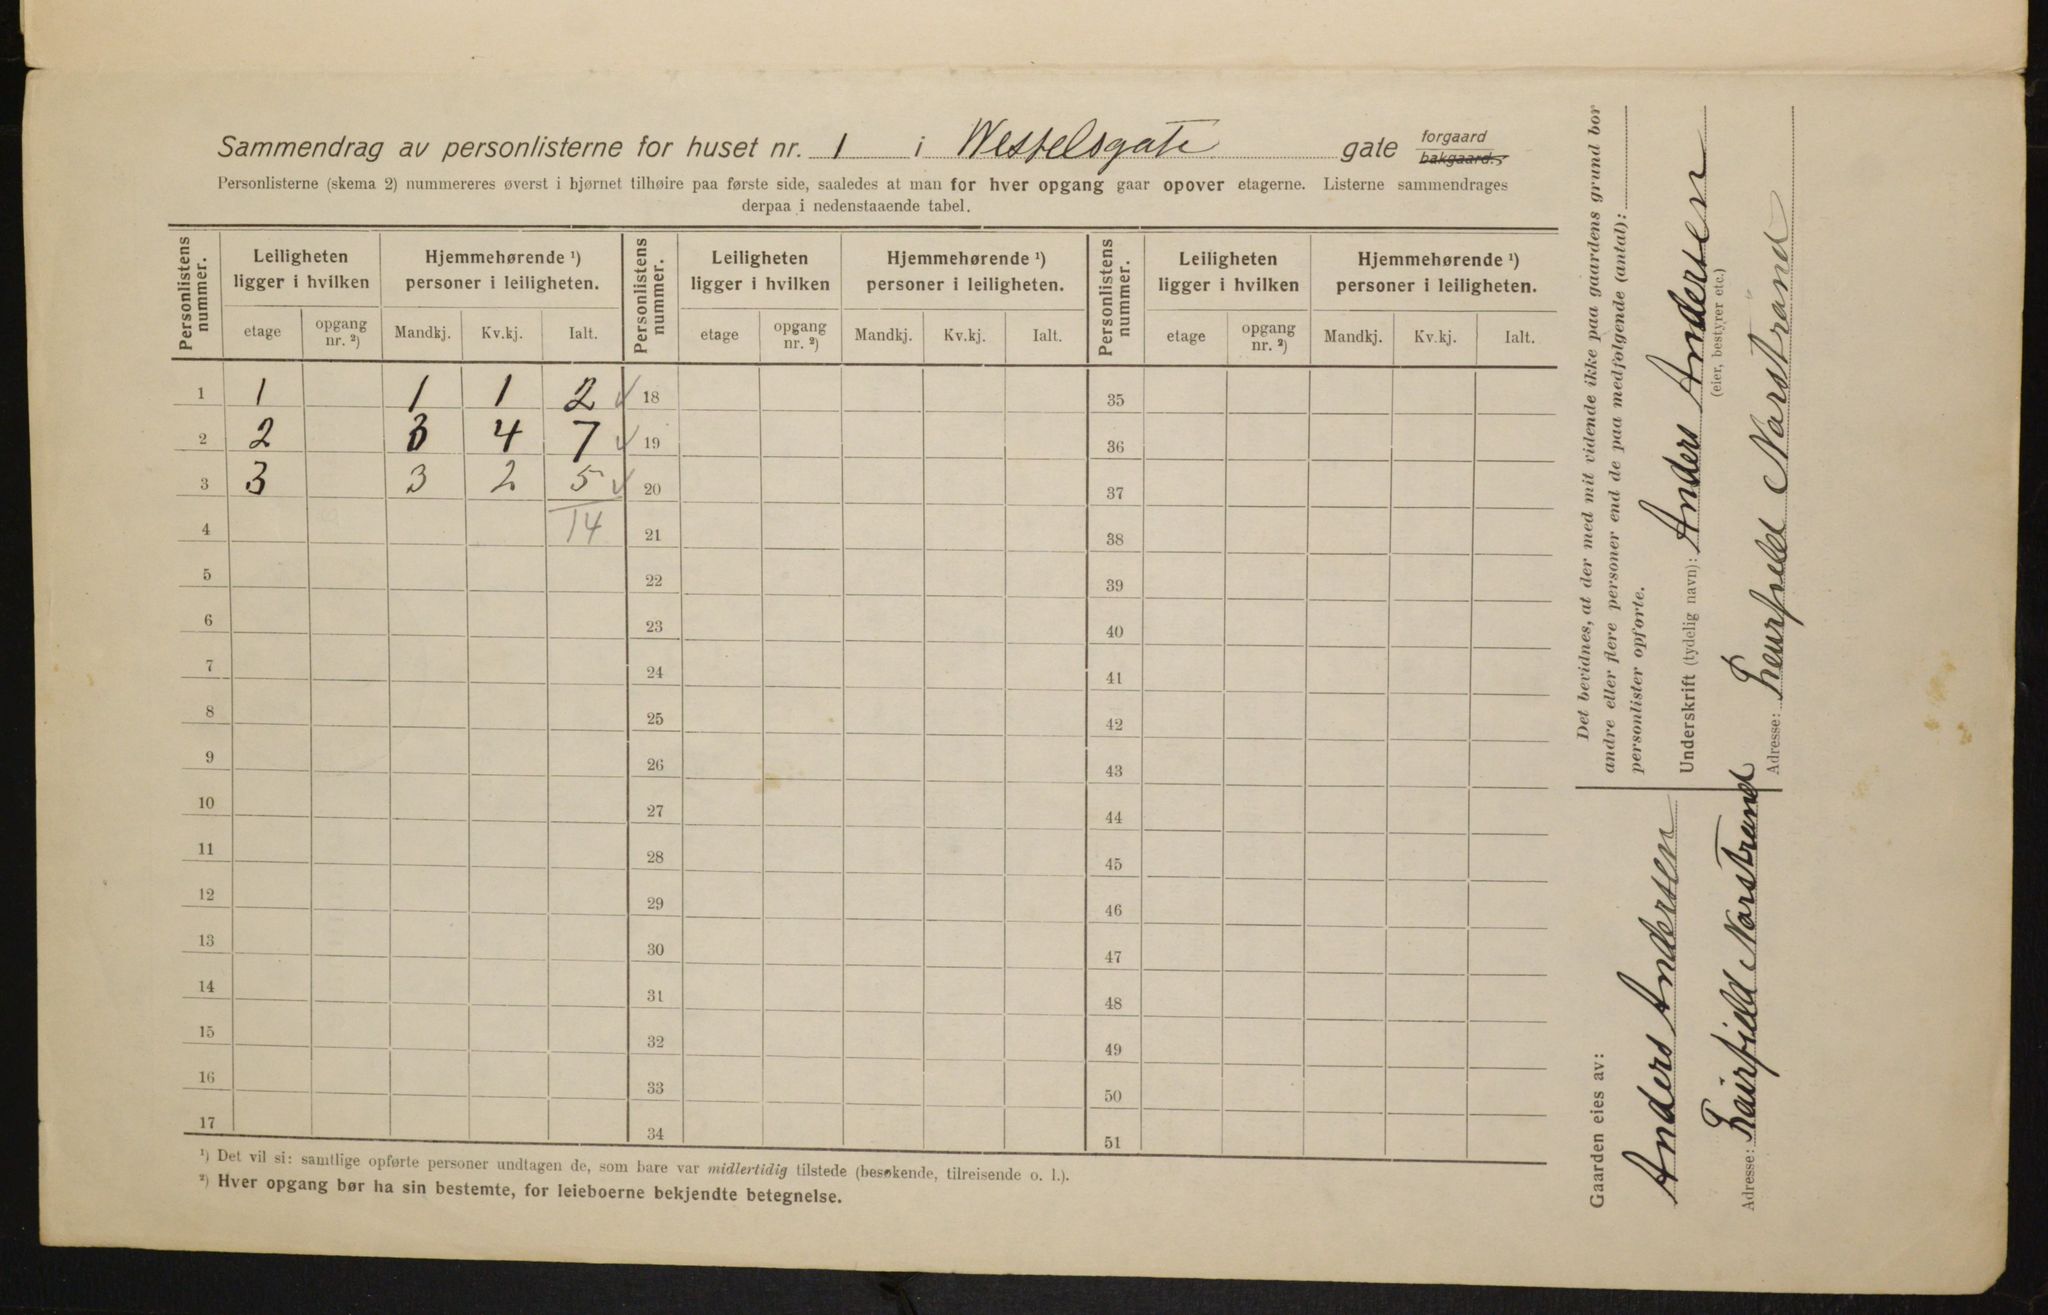 Sammendrag av personlisterne for huset nr. 1 i Wesselsgate gate forgaard bakgaard.
Personlisterne (skema 2) nummereres øverst i hjørnet tilhøire paa første side, saaledes at man for hver opgang gaar opover etagerne. Listerne sammendrages
derpaa i nedenstaaende tabel.
Personlistens nummer. Leiligheten ligger i hvilken Hjemmehørende ¹) personer i leiligheten. Personlistens nummer. Leiligheten ligger i hvilken Hjemmehørende ¹) personer i leiligheten. Personlistens nummer. Leiligheten ligger i hvilken Hjemmehørende ¹) personer i leiligheten.
etage opgang nr. ²) Mandkj. Kv.kj. Ialt. etage opgang nr. ²) Mandkj. Kv.kj. Ialt. etage opgang nr. ²) Mandkj. Kv.kj. Ialt.
1 1 1 1 2 ✓ 18 35
2 2 3 4 7 ✓ 19 36
3 3 3 2 5 ✓ 20 37
4 14 21 38
5 22 39
6 23 40
7 24 41
8 25 42
9 26 43
10 27 44
11 28 45
12 29 46
13 30 47
14 31 48
15 32 49
16 33 50
17 34 51
¹) Det vil si: samtlige opførte personer undtagen de, som bare var midlertidig tilstede (besøkende, tilreisende o. l.).
²) Hver opgang bør ha sin bestemte, for leieboerne bekjendte betegnelse.
Det bevidnes, at der med mit vidende ikke paa gaardens grund bor
andre eller flere personer end de paa medfølgende (antal):
personlister opførte.
Underskrift (tydelig navn): Anders Andersen
(eier, bestyrer etc.)
Adresse: Nordstrand
Gaarden eies av:
Anders Andersen
Adresse: Fairfield Norstrand